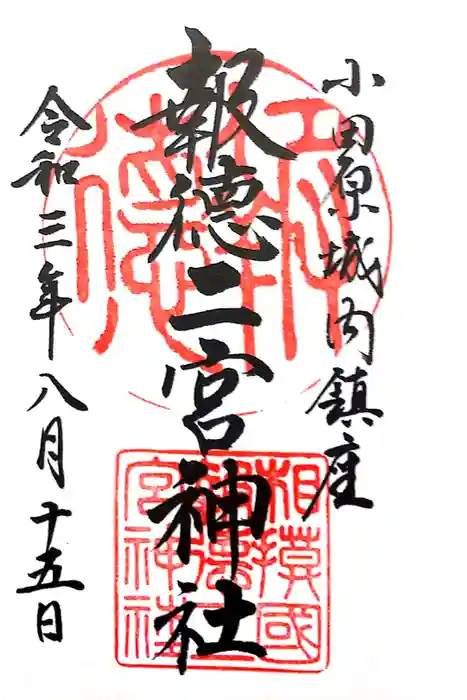 小田原城内鎮座
報徳二宮神社
令和三年八月十五日
相模國
報徳二
宮神社